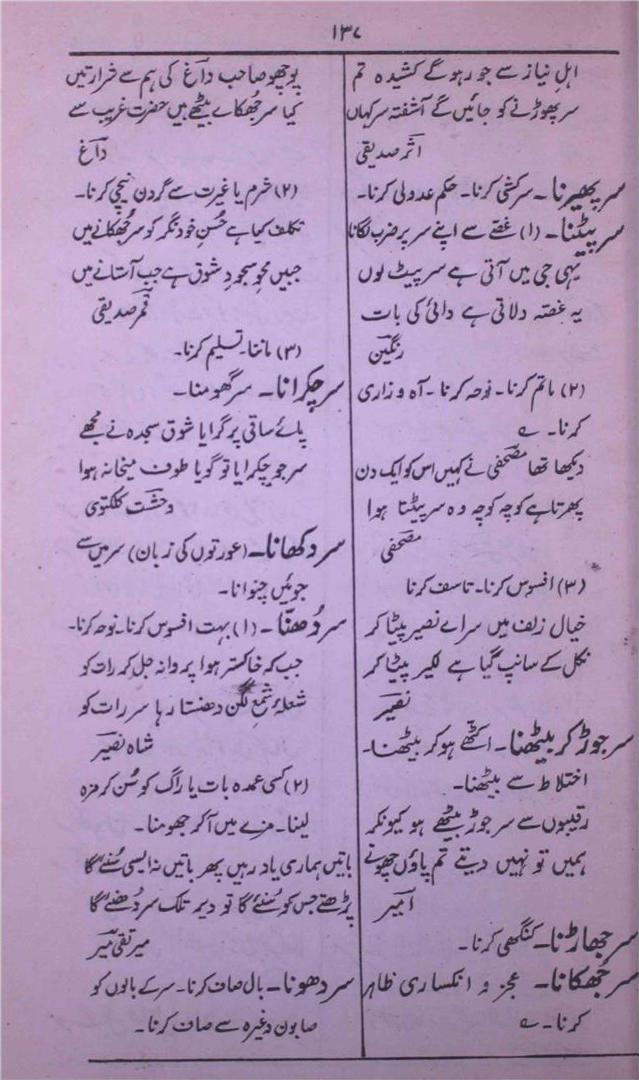 ۱۳۷
اہلِ نیاز سے جو رہو گے کشیدہ تم
سر پھوڑنے کو جائیں گے آشفتہ سر کہاں
اثر صدیقی
سر پھیرنا۔ سرکشی کرنا۔ حکم عدولی کرنا۔
سر پیٹنا۔ (۱) غصّے سے اپنے سر پر ضرب لگانا
یہی جی میں آتی ہے سر پیٹ لوں
یہ غصّہ دلاتی ہے دائی کی بات
رنگین
(۲) ماتم کرنا۔ نوحہ کرنا۔ آہ و زاری
کرنا۔ ؎
دیکھا تھا مصحفی نے کہیں اس کو ایک دن
پھرتا ہے کوچہ کوچہ وہ سر پیٹتا ہوا
مصحفی
(۳) افسوس کرنا۔ تاسف کرنا
خیالِ زلف میں سر اے نصیر پیٹا کر
نکل کے سانپ گیا ہے لکیر پیٹا کر
نصیر
سر جوڑ کر بیٹھنا۔ اکٹھے ہو کر بیٹھنا۔
اختلاط سے بیٹھنا۔
رقیبوں سے سر جوڑ بیٹھے ہو کیونکر
ہمیں تو نہیں دیتے تم پاؤں چھونے
امیر
سر جھاڑنا۔ کنگھی کرنا۔
سر جھکانا۔ عجز و انکساری ظاہر
کرنا۔ ؎
پوچھو صاحب داغ کی ہم سے شرارتیں
کیا سر جُھکائے بیٹھے ہیں حضرت غریب سے
داغ
(۲) شرم یا غیرت سے گردن نیچی کرنا۔
تکلف کیا ہے حُسنِ خود نگر کو سر جُھکانے میں
جبیں محوِ سجودِ شوق ہے جب آستانے میں
قمر صدیقی
(۳) ماننا۔ تسلیم کرنا۔
سر چکرانا۔ سر گھومنا۔
پائے ساقی پر گرایا شوقِ سجدہ نے مجھے
سر جو چکرایا تو گویا طوفِ میخانہ ہوا
وحشت کلکتوی
سر دکھانا۔ (عورتوں کی زبان) سر میں سے
جوئیں چنوانا۔
سر دُھننا۔ (۱) بہت افسوس کرنا۔ نوحہ کرنا۔
جب کہ خاکستر ہوا پروانہ جل کر رات کو
شعلۂ شمع لگن دھنتا رہا سر رات کو
شاہ نصیر
(۲) کسی عمدہ بات یا راگ کو سُن کر مزہ
لینا۔ مزے میں آ کر جھومنا۔
باتیں ہماری یاد رہیں پھر باتیں نہ ایسی سُنئے گا
پڑھتے جس کو سُنئے گا تو دیر تلک سر دُھنئے گا
میر تقی میر
سر دھونا۔ بال صاف کرنا۔ سر کے بالوں کو
صابون وغیرہ سے صاف کرنا۔